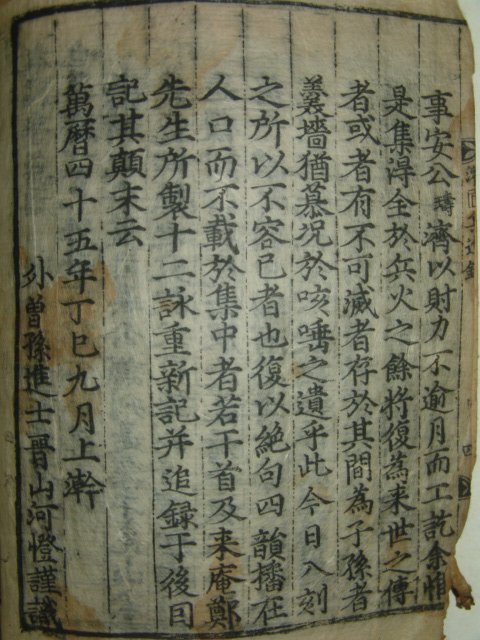 事安公璹濟以財力不逾月而工訖余惟
是集得全於兵火之餘將復爲来世之傳
者或者有不可滅者存於其間爲子孫者
羹墻猶慕况於咳唾之遺乎此今日入刻
之所以不容已者也復以絶句四韻播在
人口而不載於集中者若干首及来庵鄭
先生所製十二詠重新記并追錄于後因
記其顛末云
萬曆四十五年丁巳九月上澣
外曾孫進士晋山河憕謹識